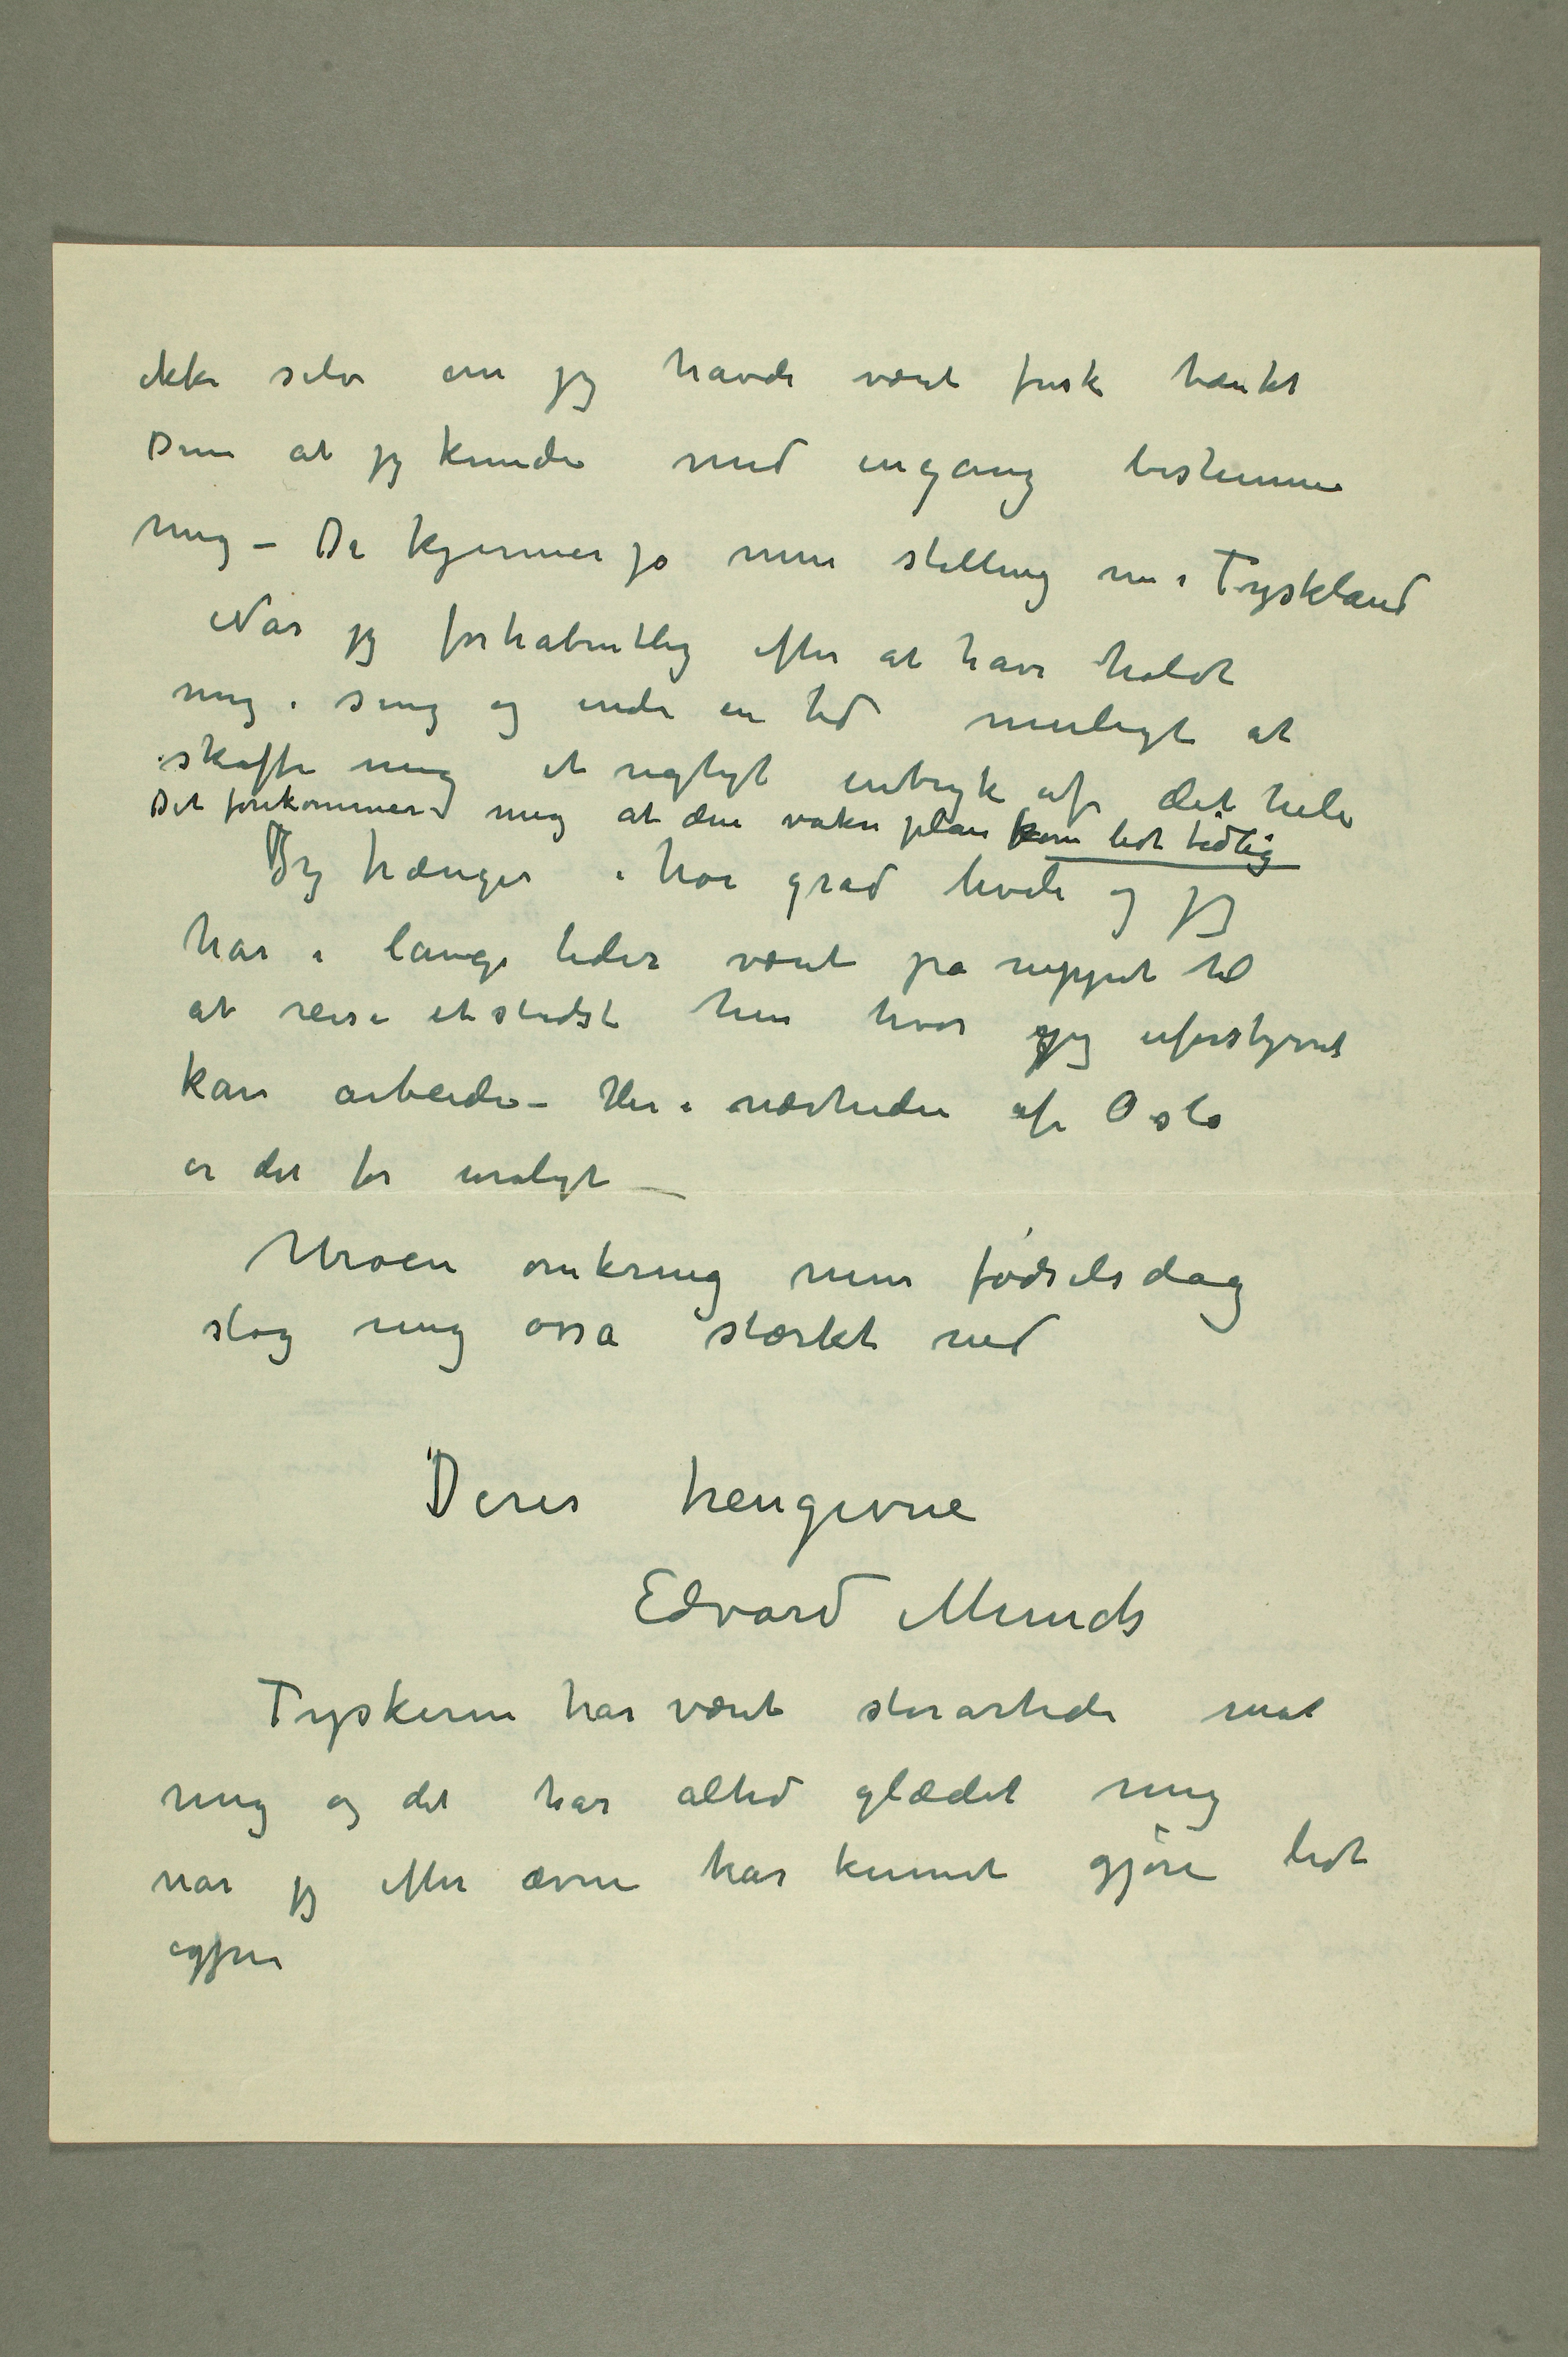 ikke selv om jeg havde været frisk tænkt
Dem at jeg kunde med engang bestemme
mig – De kjenner jo min stilling nu i Tyskland
Når jeg forhåbentlig efter at have holdt
mig i seng og inde en tid muligt at
skaffe mig et rigtigt intryk af det hele
Det forekommer mig at den vakre plan kom lidt tidlig
Jeg trænger i høi grad hvile og jeg
har i lange tider været på nippet til
at reise etstedst hen hvor jeg uforstyrret
kan arbeide – Her i nærheden af Oslo
er det for uroligt –
Uroen omkring min fødselsdag
slog mig osså stærkt ned
Deres hengivne
Edvard Munch
Tyskerne har været storartede mot
mig og det har altid glædet mig
når jeg efter ævne har kunnet gjøre lidt
igjen